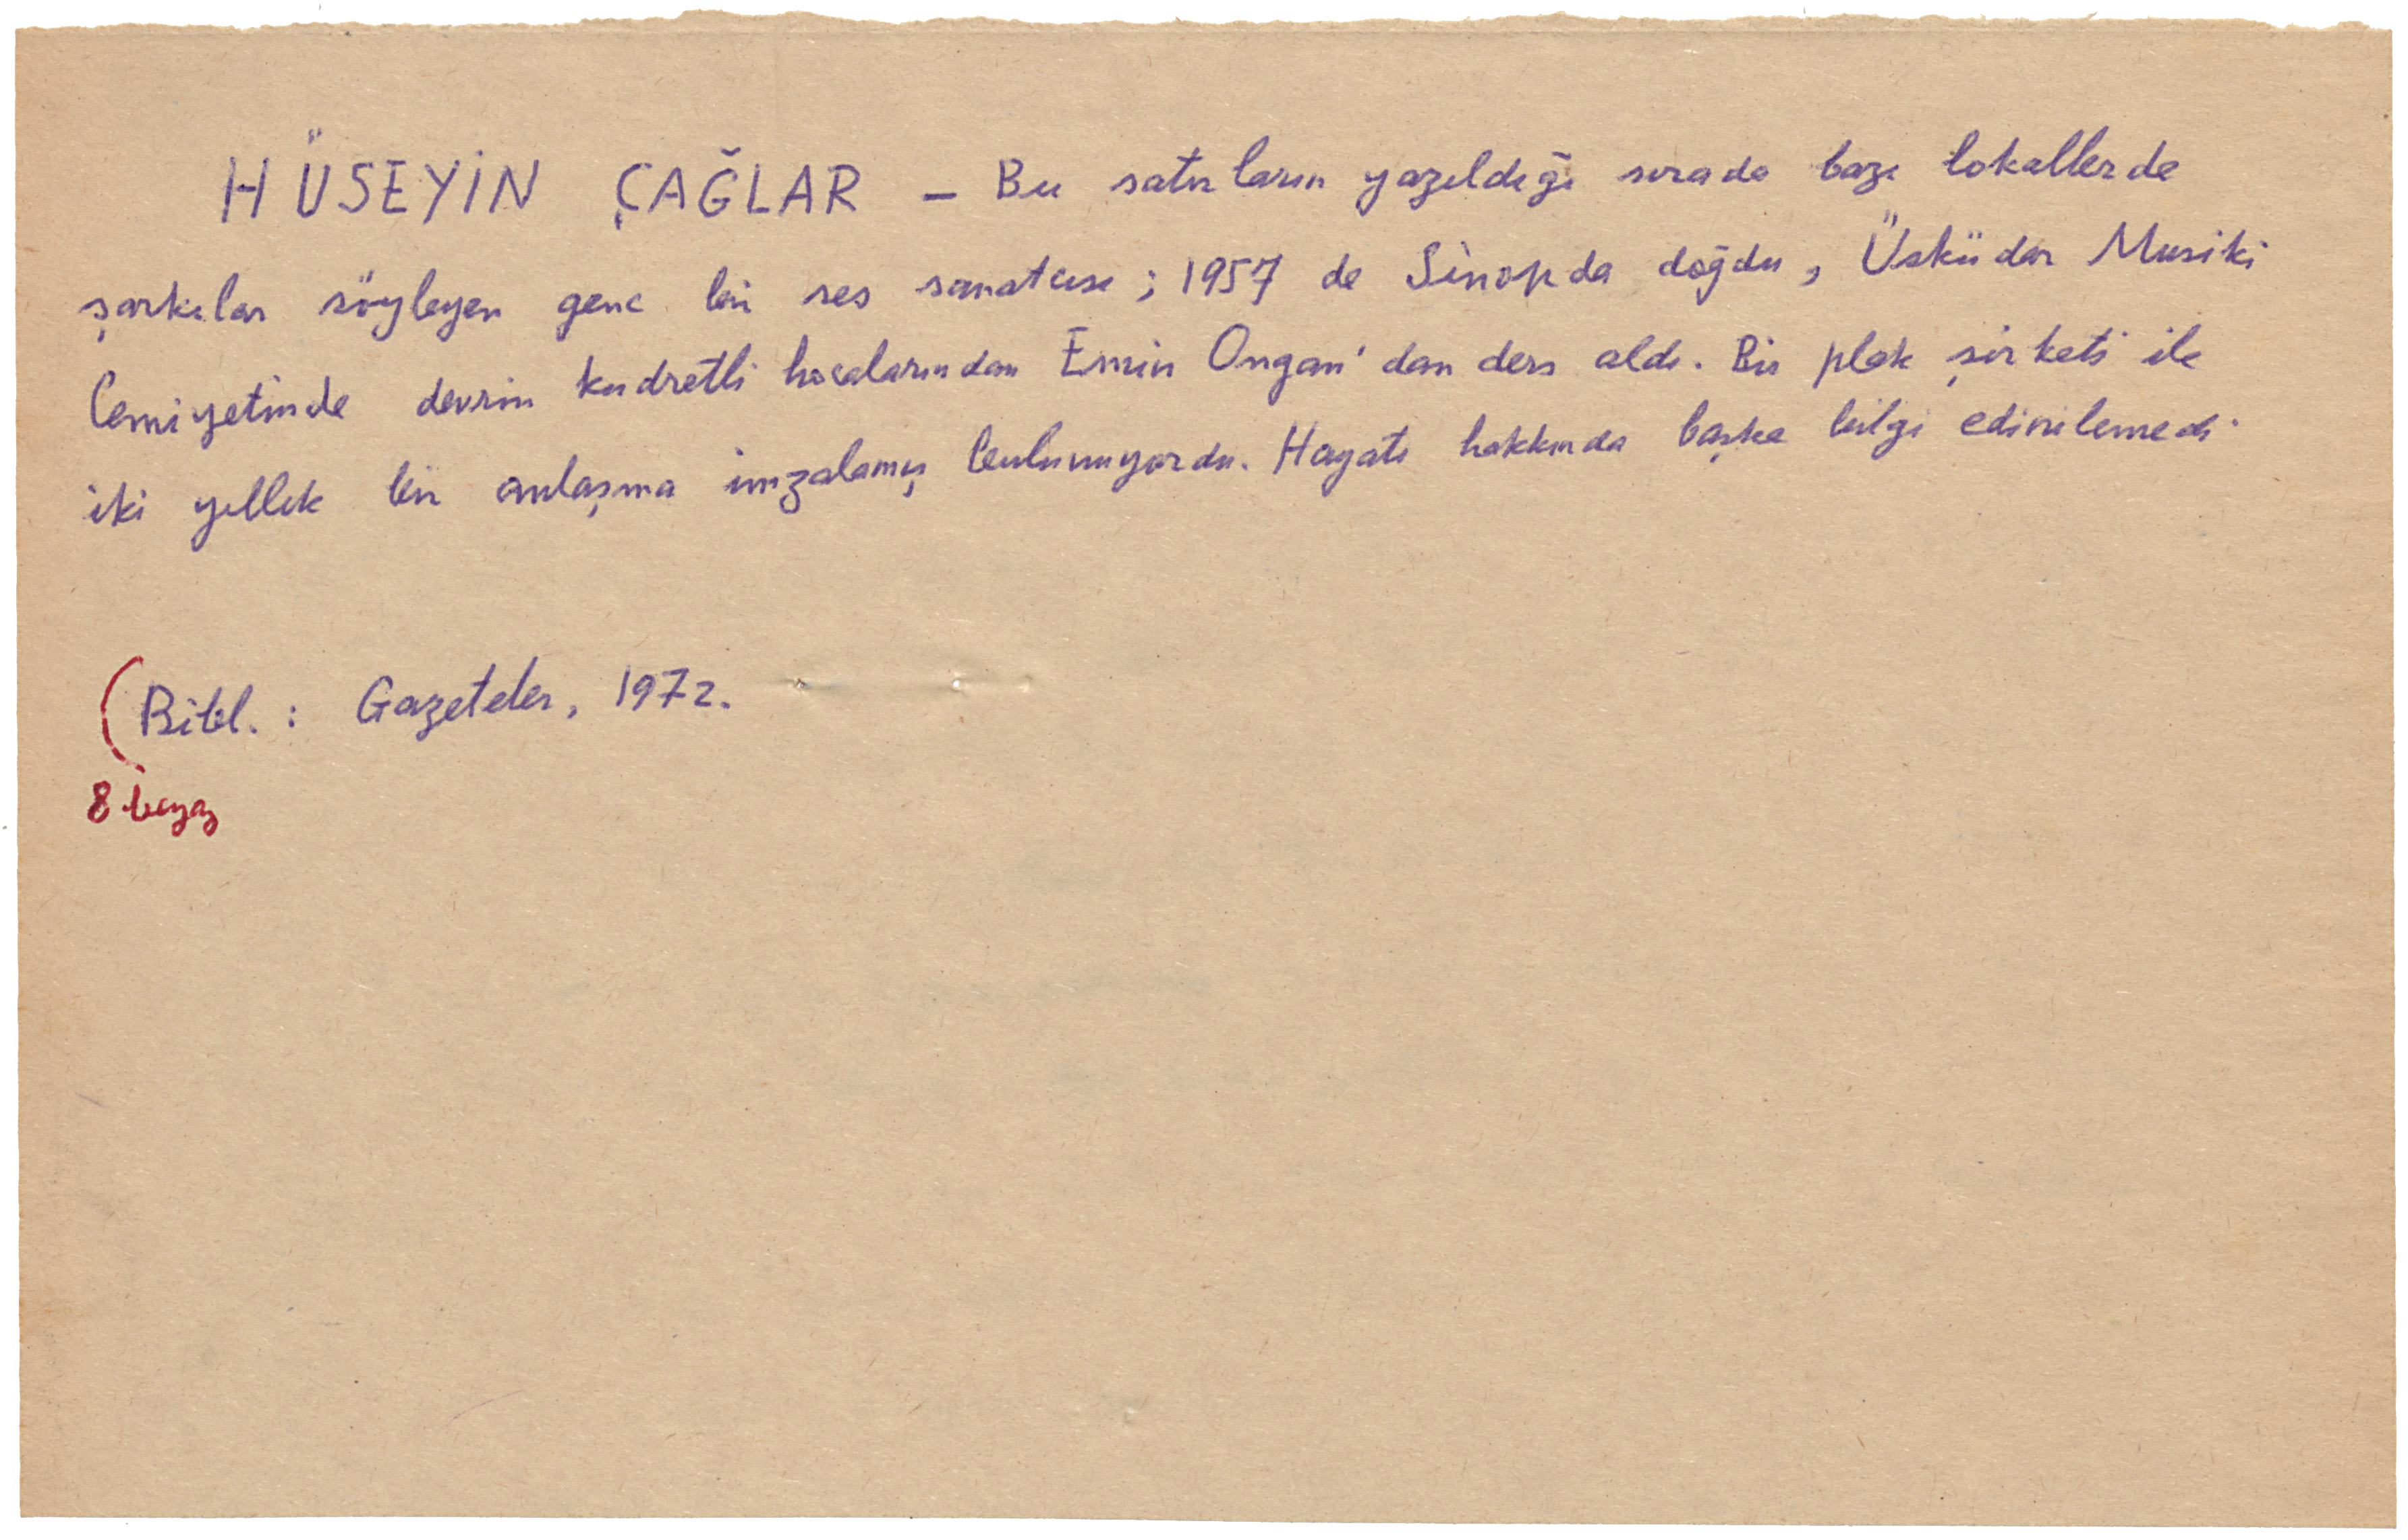 HÜSEYİN ÇAĞLAR – Bu satırların yazıldığı sırada bazı lokallerde
şarkılar söyleyen genc bir ses sanatcısı ; 1957 de Sinopda doğdu, Üsküdar Musiki
Cemiyetinde devrin kudretli hocalarından Emin Ongan'dan ders aldı. Bir plak şirketi ile
iki yıllık bir anlaşma imzalamış bulunuyordu. Hayatı hakkında başka bilgi edinilemedi.
(Bibl. : Gazeteler, 1972.
8 beyaz